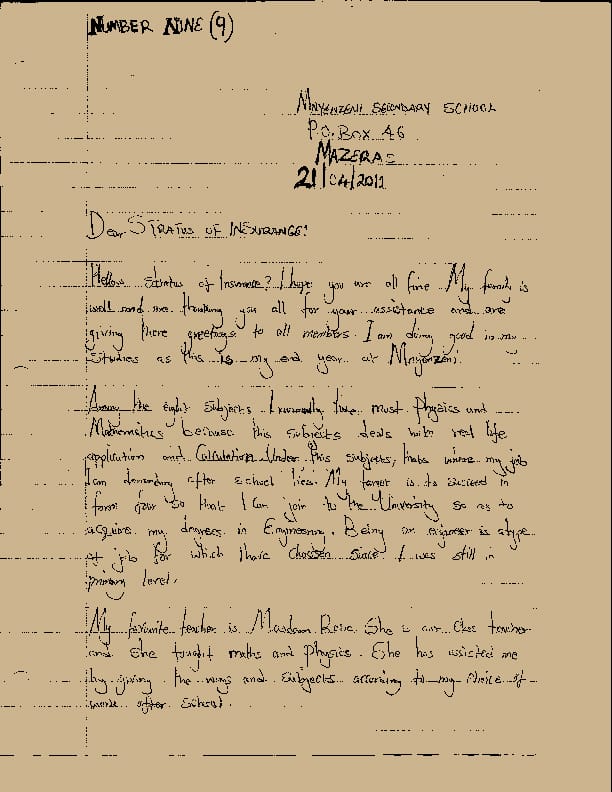 NUMBER NINE (9)
MNYENZENI SECONDARY SCHOOL
P.O. BOX 46
MAZERAS
21/04/2011
Dear STRATUS OF INSURANGE!
Hellow stratus of Insurance? I hope you are all fine My family is
well and are thanking you all for your assistance and are
giving there greetings to all members. I am doing good in my
Studies as this is my end year at Mnyenzeni.
Among the eight subjects I normally like most Physics and
Mathematics because this subjects deals with real life
application and Calculation. Under this subjects, thats where my job
I am demanding after school lies. My target is to succeed in
form four so that I Can join to the University so as to
acquire my degrees in Engineering. Being an engineer is a type
of job for which I have chossen since I was still in
primary level.
My favourite teacher is Madam. She is our Class teacher
and She tought maths and Physics. She has assisted me
by giving the ways and subjects according to my choice of
work after School.